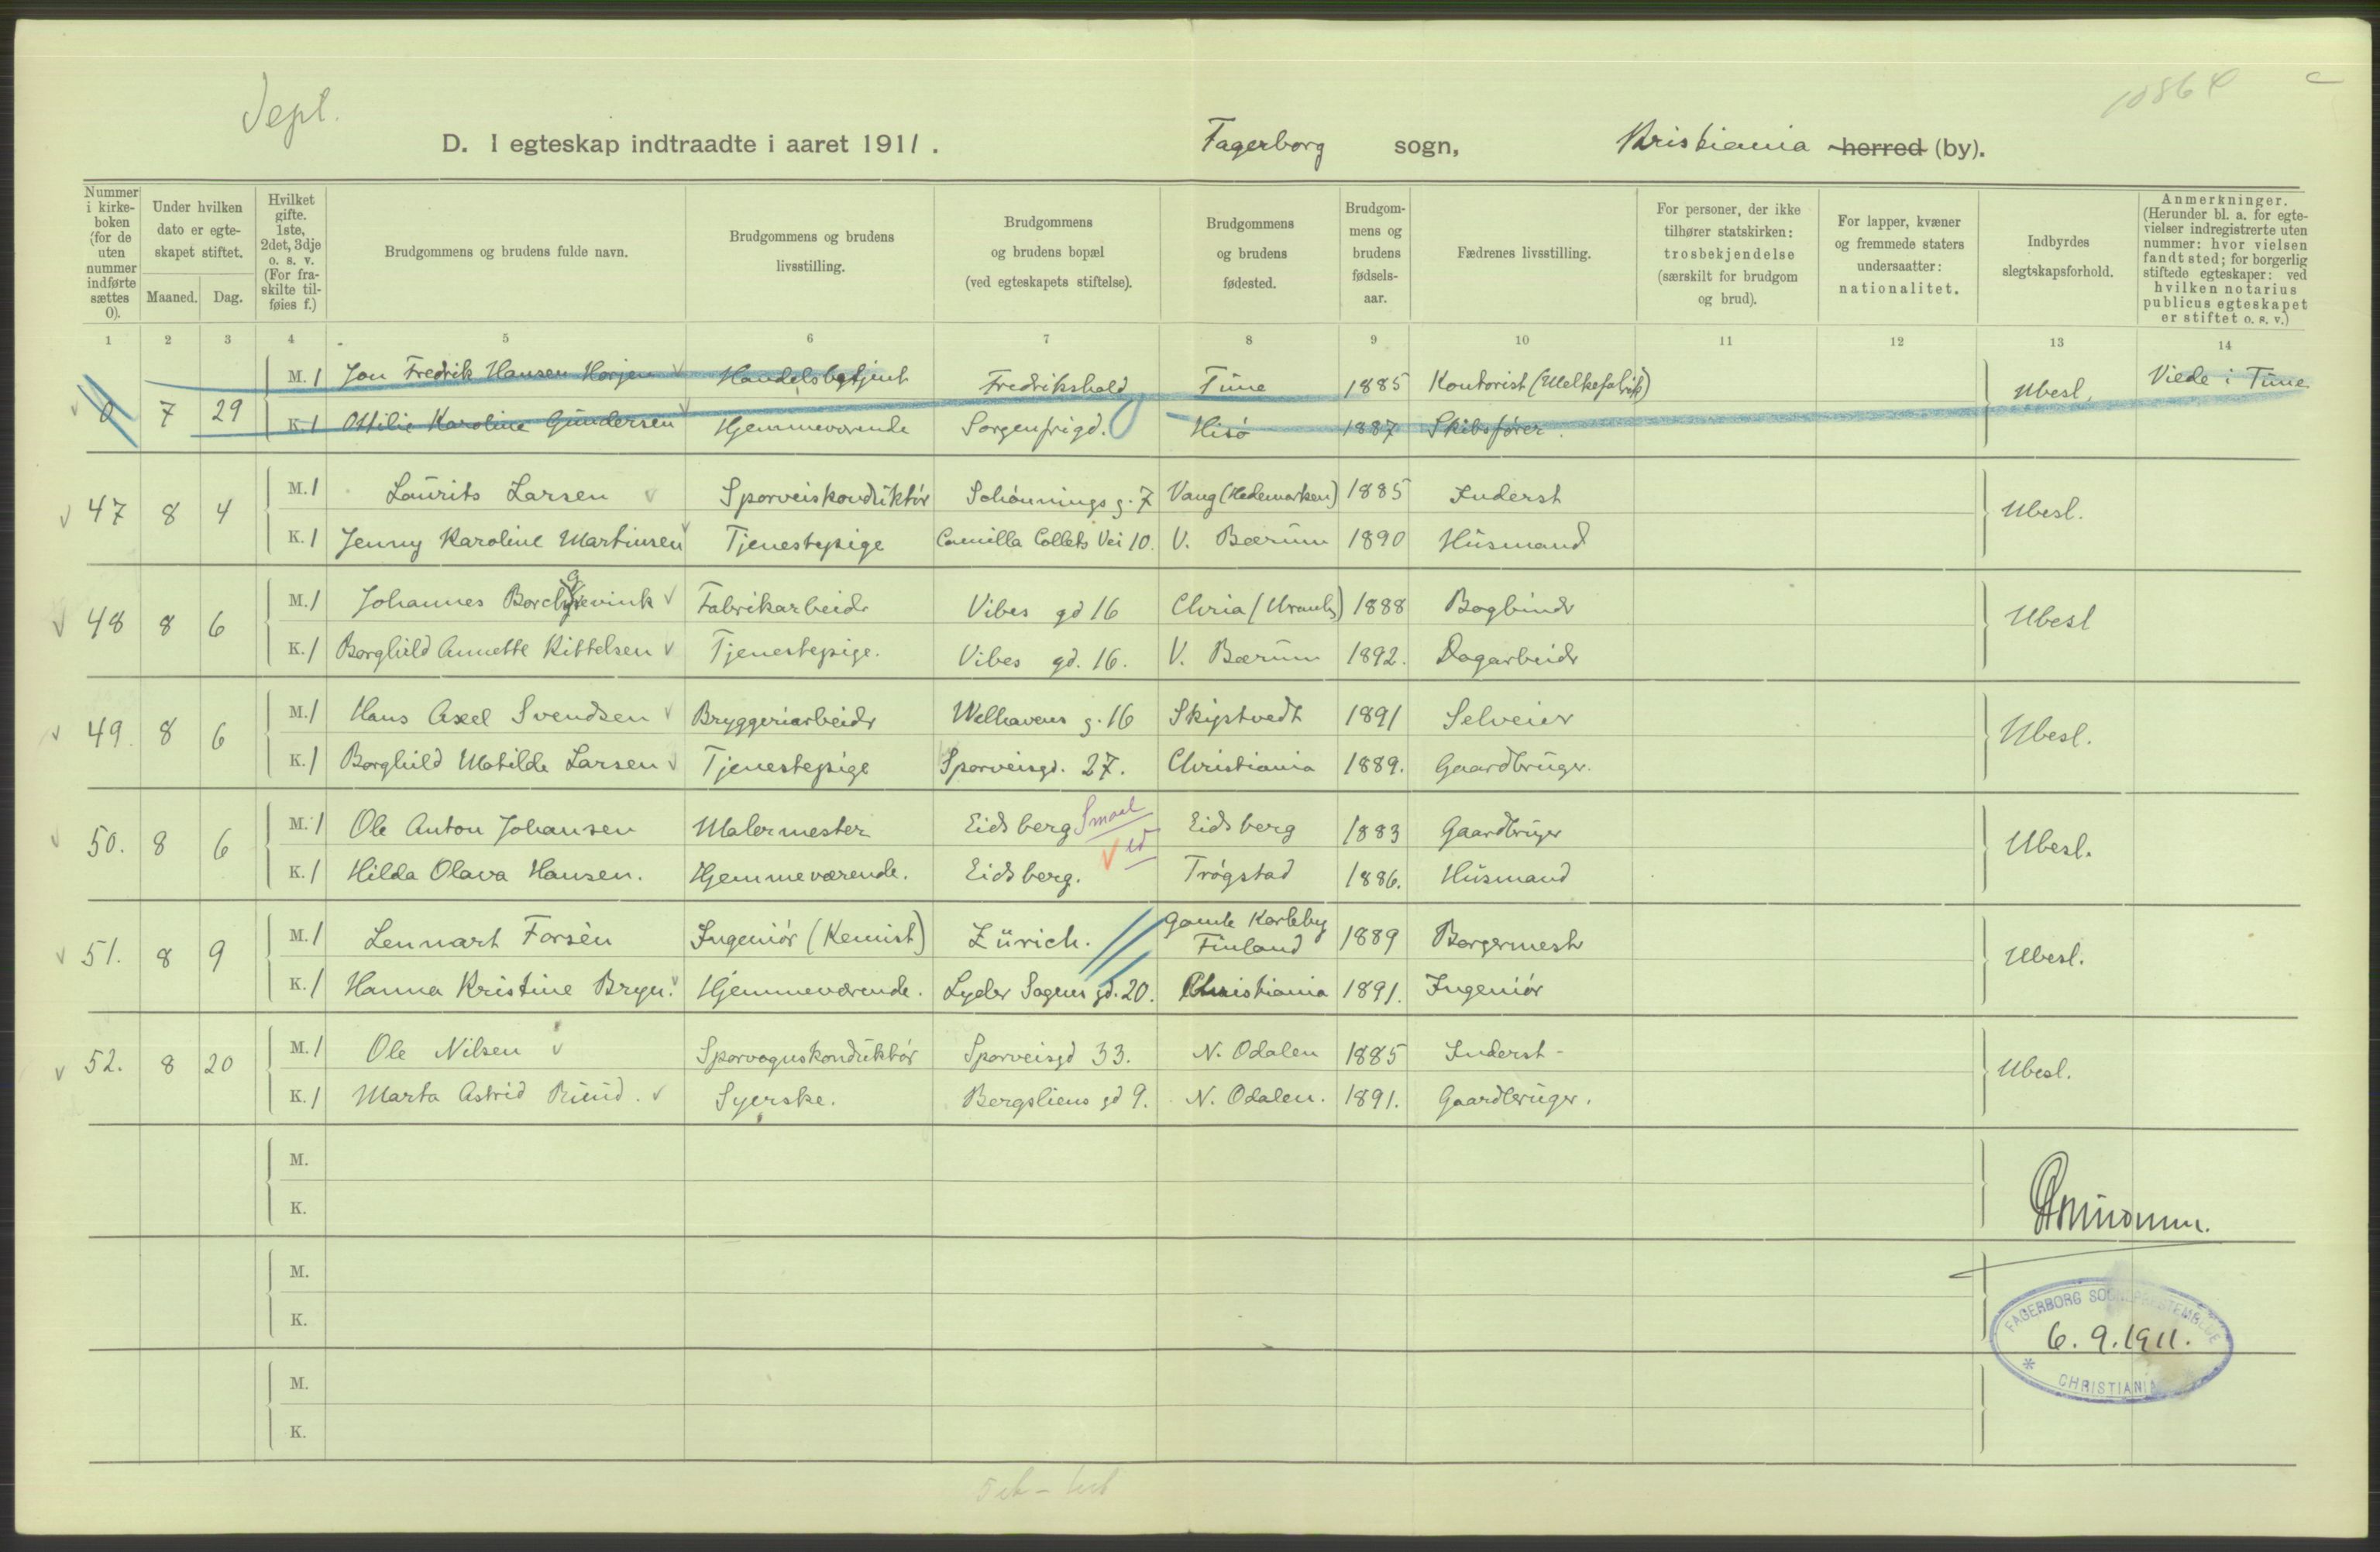 Sept.
10864
D. I egteskap indtraadte i aaret 1911. Fagerborg sogn, Kristiania herred (by).
Nummer i kirke-boken (for de uten nummer indførte sættes 0).
Under hvilken dato er egte-skapet stiftet.
Maaned. Dag.
Hvilket gifte. 1ste, 2det, 3dje o. s. v. (For fra-skilte til-føies f.)
Brudgommens og brudens fulde navn.
Brudgommens og brudens livsstilling.
Brudgommens og brudens bopæl (ved egteskapets stiftelse).
Brudgommens og brudens fødested.
Brudgom-mens og brudens fødsels-aar.
Fædrenes livsstilling.
For personer, der ikke tilhører statskirken: trosbekjendelse (særskilt for brudgom og brud).
For lapper, kvæner og fremmede staters undersaatter: nationalitet.
Indbyrdes slegtskapsforhold.
Anmerkninger. (Herunder bl. a. for egte-vielser indregistrerte uten nummer: hvor vielsen fandt sted; for borgerlig stiftede egteskaper: ved hvilken notarius publicus egteskapet er stiftet o. s. v.)
1 2 3 4 5 6 7 8 9 10 11 12 13 14
M. 1 Jon Fredrik Hansen Horjen Handelsbetjent Fredrikshald Tune 1885 Kontorist (Melkefabrik) Viede i Tune
0 7 29 Ubesl.
K. 1 Ottilie Karoline Gundersen Hjemmeværende Sorgenfrigd. Hisø 1887 Skibsfører.
M. 1 Laurits Larsen Sporveiskonduktør Schønnings g. 7 Vang (Hedemarken) 1885 Inderst
47 8 4 Ubesl.
K. 1 Jenny Karoline Martinsen Tjenestepige Camilla Colletts Vei 10. V. Bærum 1890 Husmand
M. 1 Johannes Borchgrevink Fabrikarbeider Vibes gd 16 Chria (Uranbg) 1888 Bogbinder
48 8 6 Ubesl
K. 1 Borghild Annette Kittelsen Tjenestepige. Vibes gd. 16. V. Bærum 1892. Dagarbeider
M. 1 Hans Axel Svendsen Bryggeriarbeider Welhavens g. 16 Skipstvedt 1891 Selveier
49. 8 6 Ubesl.
K. 1 Borghild Matilde Larsen Tjenestepige Sporveisgd. 27. Christiania 1889. Gaardbruger.
M. 1 Ole Anton Johansen Malermester Eidsberg Smaal Eidsberg 1883 Gaardbruger
50. 8 6 Ubesl.
K. 1 Hilda Olava Hansen. Hjemmeværende. Eidsberg. Trøgstad 1886. Husmand
M. 1 Lennart Forsèn Ingeniør (Kemist) Zürich. Gamle Karleby Finland 1889 Borgermester
51. 8 9 Ubesl.
K. 1 Hanna Kristine Bryn. Hjemmeværende. Lyder Sagens gd. 20. Christiania 1891. Ingeniør
M. 1 Ole Nilsen Sporvognskonduktør Sporveisgd 33. N. Odalen 1885 Inderst
52. 8 20 Ubesl.
K. 1 Marta Astrid Ruud. Syerske. Bergsliens gd 9. N. Odalen. 1891. Gaardbruger.
M.
K.
M.
K.
M.
K.
FAGERBORG SOGNEPRESTEMBEDE
6. 9. 1911.
CHRISTIANIA